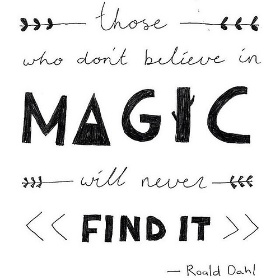 those
who don't believe in
MAGIC
will never
<< FIND IT >>
— Roald Dahl